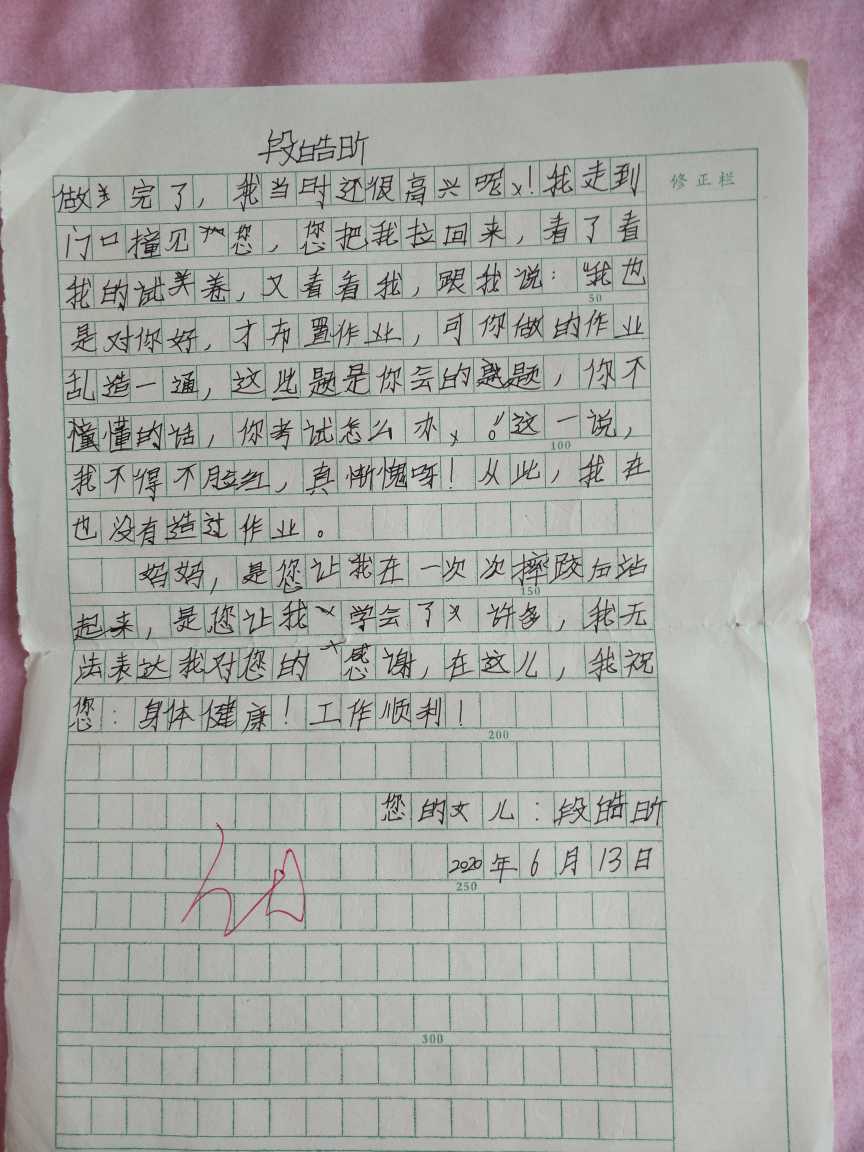 段皓昕
修正栏
做完了，我当时还很高兴呢！我走到
门口撞见您，您把我拉回来，看了看
我的试卷，又看看我，跟我说：“我也
50
是对你好，才布置作业，可你做的作业
乱造一通，这些题是你会的题，你不
懂的话，你考试怎么办。”这一说，
100
我不得不脸红，真惭愧呀！从此，我在
也没有造过作业。
妈妈，是您让我在一次次摔跤后站
150
起来，是您让我学会了许多，我无
法表达我对您的感谢，在这儿，我祝
您：身体健康！工作顺利！
200
您的女儿：段皓昕
2020年6月13日
250
300